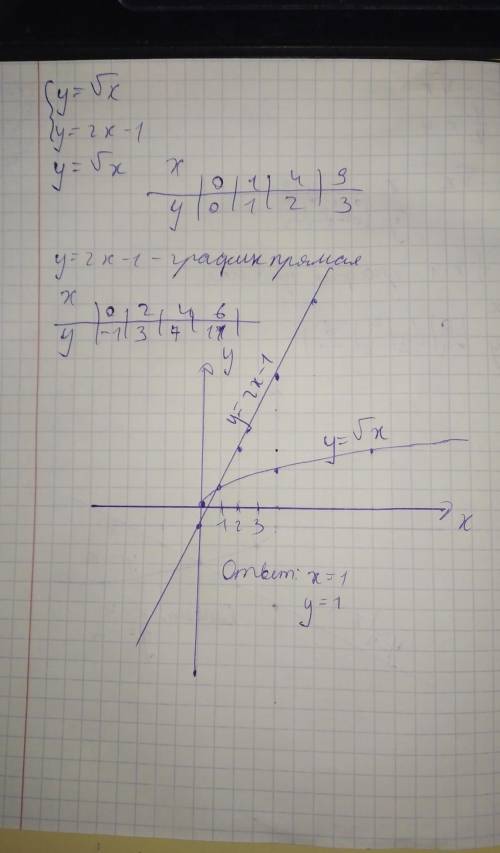 {y=√x
{y=2x-1
y=√x
x | 0 | 1 | 4 | 9
y | 0 | 1 | 2 | 3
y=2x-1 - график прямая
x | 0 | 2 | 4 | 6
y | -1 | 3 | 7 | 11
y
y=2x-1
y=√x
1 2 3
x
Ответ: x=1
y=1